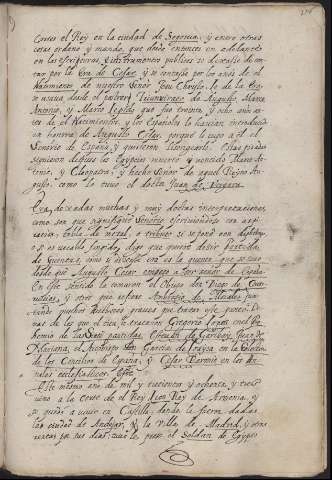 Cortes el Rey en la ciudad de Segovia, y entre otras
cosas ordeno y mando, que desde entonces en adelante
en las escrituras, e instrumentos publicos se dexasse de
por la Era de Cesar, y se contasse por los años de el
Nacimiento de nuestro Señor Jesu Christo.
usava desde el Triumvirato de Augusto, Marco
Antonio, y Marco Lepido, que fue treinta y ocho años an
tes de el Nacimiento, y los Españoles la havian introducido
en honrra de Augusto Cesar, porque le cupo a el el
Señorio de España, y quisieron lisongearle.
siguieron despues los Egypcios muerto y vencido Marco An
tonio, y Cleopatra, y hecho Señor de aquel Reyno Au
gusto, como lo tuvo el docto Juan de Vergara.
Era, dexadas muchas y muy doctas interpretaciones,
como son que significa Señorio escriviendola con aspi
racion, tabla de metal, o tributo si se pone con diphtongo,
o es vocablo fingido, digo que quiere dezir Partida
de quentas, como si dixesse era es la quenta que se tuvo
desde que Augusto Cesar empeço a ser señor de España.
En este sentido la tomaron el Obispo don Diego de Covar
ruvias, y otros que refiere Ambrosio de Morales, jun
tando muchos Autores graves que tratan este punto.
mas de los que el cita, le trataron Gregorio Lopez en el Pro
hemio de las Siete partidas, Estevan de Garibay, Juan de
Mariana, el Arçobispo don Garcia de Loaysa en la Coleccion
de los Concilios de España, y Cesar Baronio en los An
nales ecclesiasticos.
Este mismo año de mil y trecientos y ochenta y tres
vino a la Corte de el Rey Leon Rey de Armenia, y
se quedo a vivir en Castilla, donde le fueron dadas
la ciudad de Andujar, y la Villa de Madrid, y otras
rentas por sus dias, el Soldan de Egypto